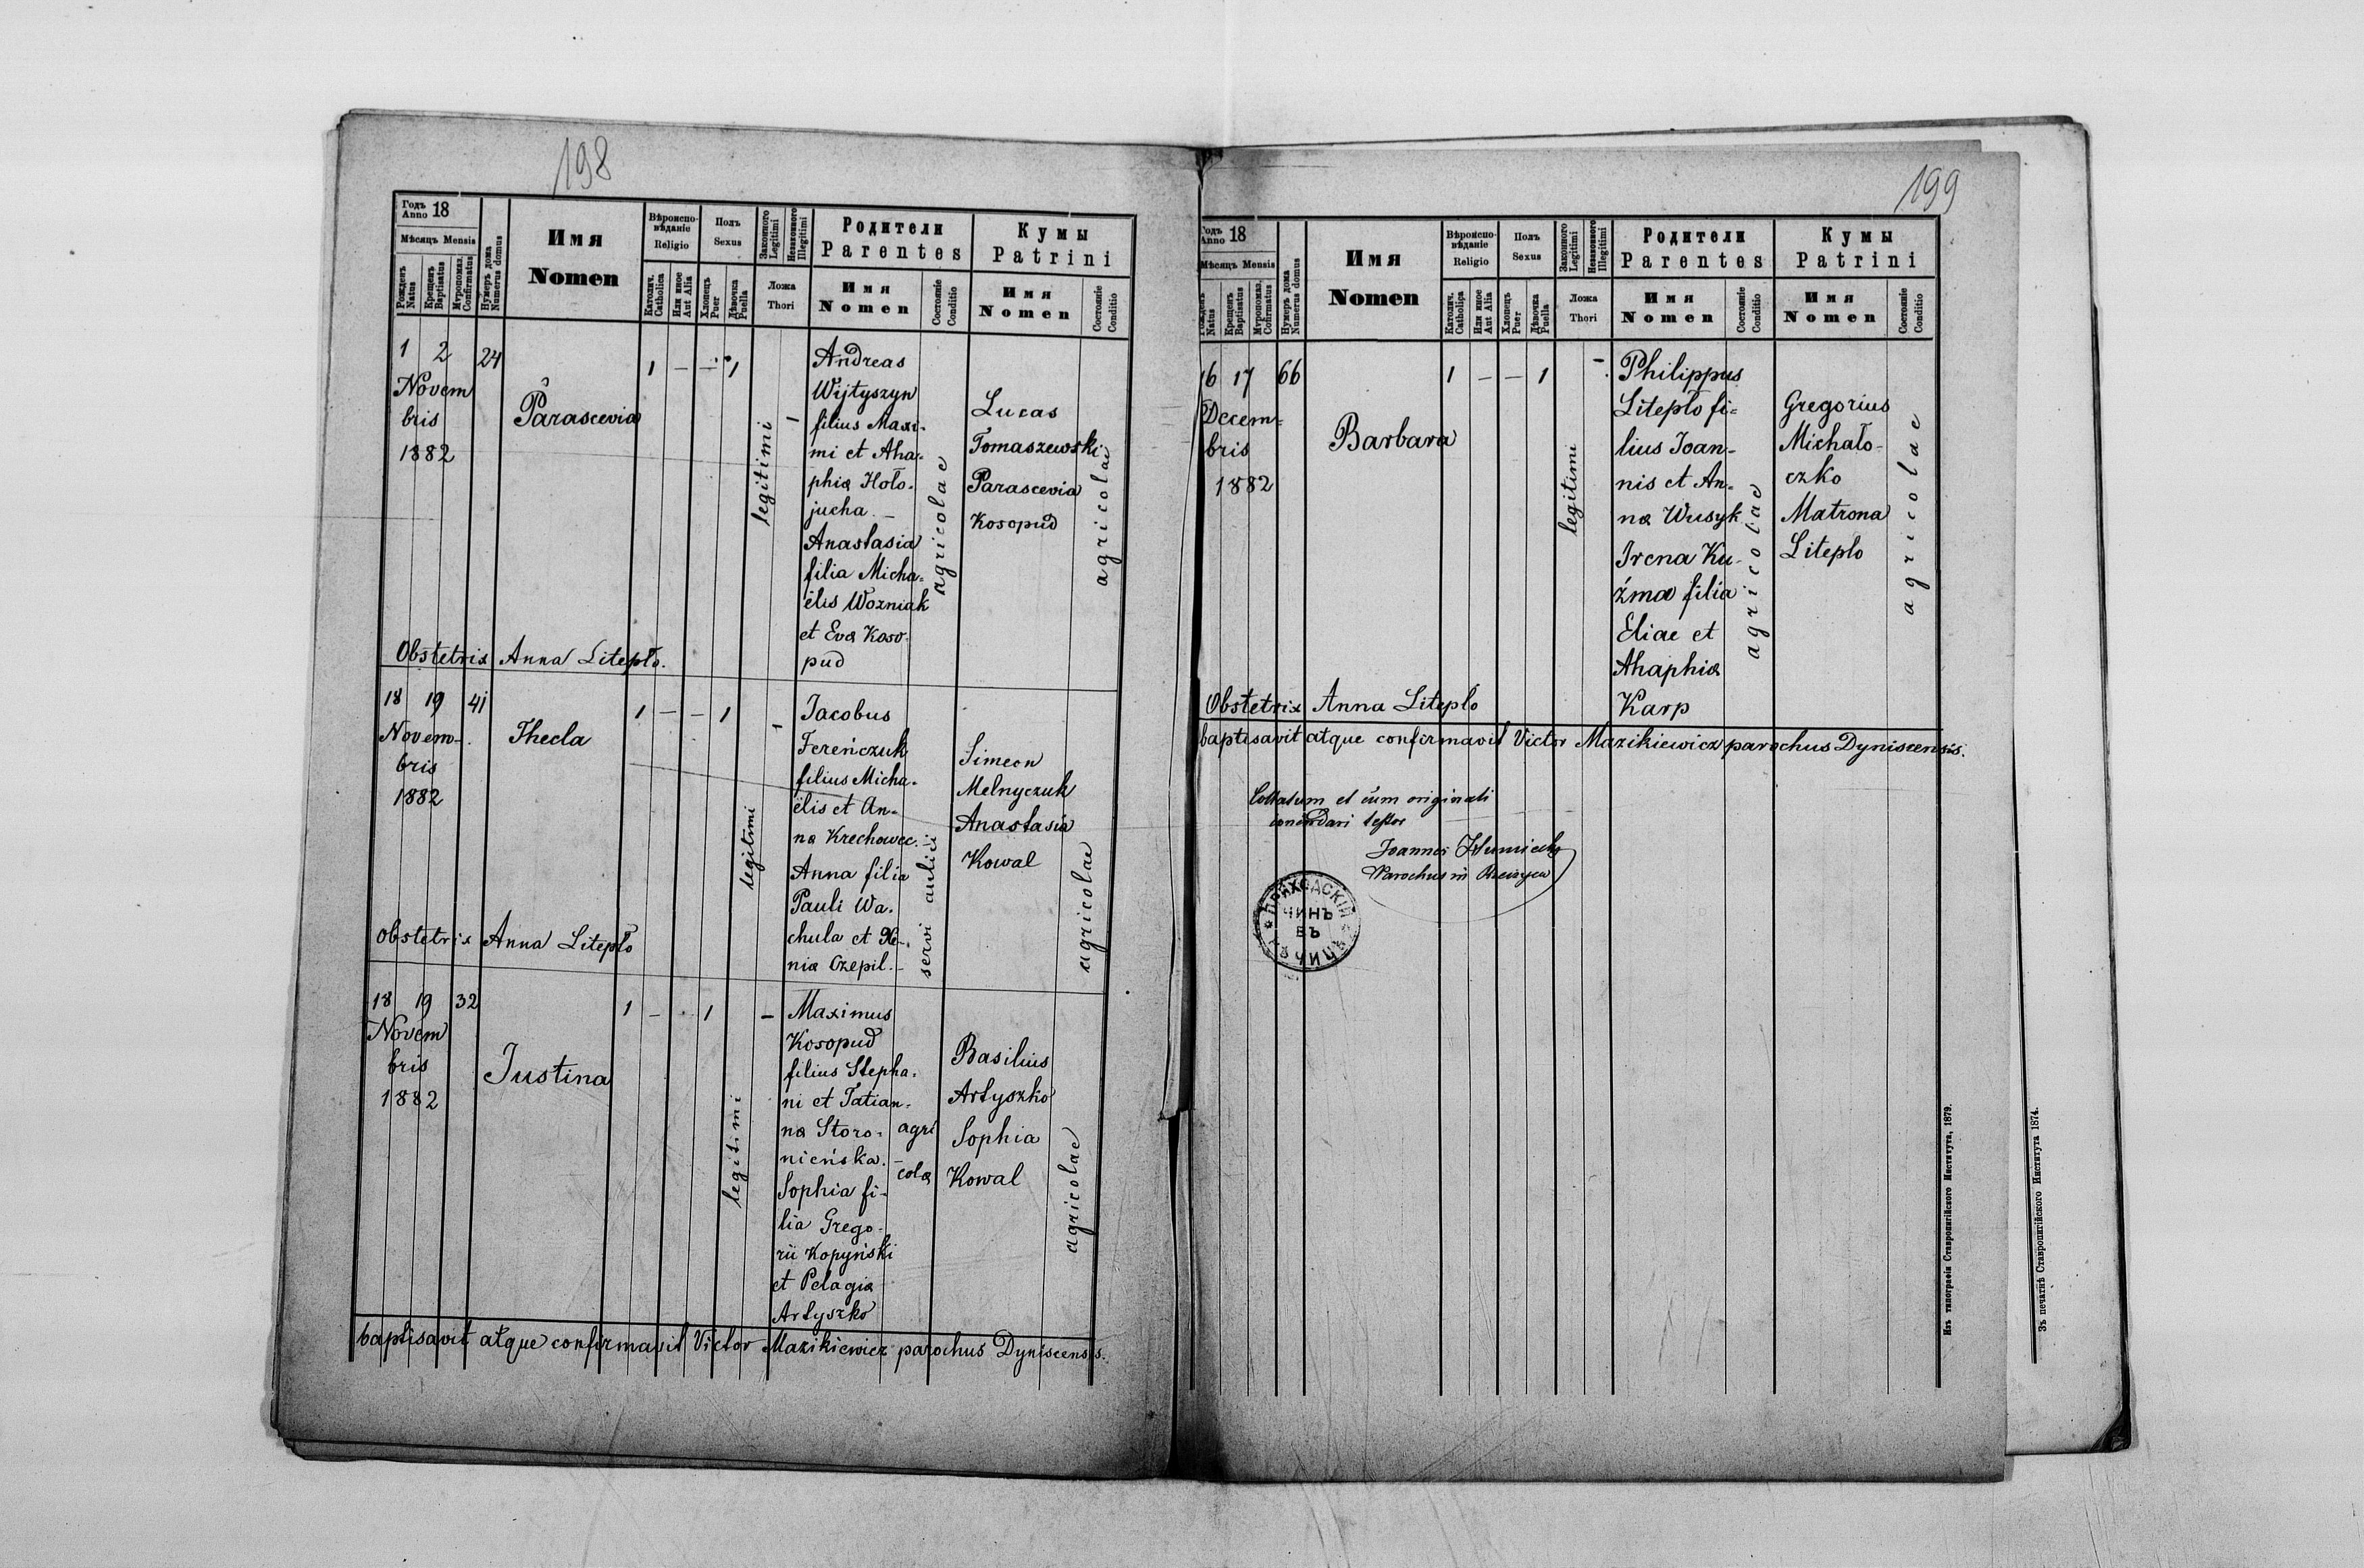 198
Годъ Anno 18
Мѣсяцъ Mensis
Рожденъ Natus
Крещенъ Baptisatus
Мѵропомаз. Confirmatus
Нумеръ дома Numerus domus
Имя
Nomen
Вѣроиспо-
вѣданіе
Religio
Католич. Catholica
Или иное Aut Alia
Полъ
Sexus
Хлопецъ Puer
Дѣвочка Puella
Законного Legitimi
Незаконного Illegitimi
Ложа
Thori
Родители
Parentes
Имя
Nomen
Состояніе Conditio
Кумы
Patrini
Имя
Nomen
Состояніе Conditio
1 2 24
Novem
bris
1882
Parascevia
1 — — 1
legitimi
Andreas
Wijtyszyn
filius Maxi-
mi et Aha-
phia Hoło-
jucha. —
Anastasia
filia Micha-
elis Wozniak
et Eva Koso-
pud
agricolae
Lucas
Tomaszewski
Parascevia
Kosopud
agricolae
Obstetrix Anna Litepło.
18 19 41
Novem-
bris
1882
Thecla
1 — — 1
legitimi
Jacobus
Fereńczuk
filius Micha-
elis et An-
na Krechowec. —
Anna filia
Pauli Wa-
chula et Xe-
nia Czepil. —
servi aulici
Simeon
Melnyczuk
Anastasia
Kowal
agricolae
Obstetrix Anna Litepło
18 19 32
Novem
bris
1882
Justina
1 — · 1
legitimi
Maximus
Kosopud
filius Stepha-
ni et Tatian-
na Storo-
nieńska. —
Sophia fi-
lia Grego-
rii Kopyński
et Pelagia
Artyszko
agri
colae
Basilius
Artyszko
Sophia
Kowal
agricolae
baptisavit atque confirmavit Victor Mazikiewicz parochus Dyniscensis.
199
Годъ Anno 18
Мѣсяцъ Mensis
Рожденъ Natus
Крещенъ Baptisatus
Мѵропомаз. Cofirmatus
Нумеръ дома Numerus domus
Имя
Nomen
Вѣроиспо-
вѣданіе
Religio
Католич. Catholica
Или иное Aut Alia
Полъ
Sexus
Хлопецъ Puer
Дѣвочка Puella
Законного Legitimi
Незаконного Illegitimi
Ложа
Thori
Родители
Parentes
Имя
Nomen
Состояніе Conditio
Кумы
Patrini
Имя
Nomen
Состояніе Conditio
16 17 66
Decem-
bris
1882
Barbara
1 — — 1
legitimi
Philippus
Litepło fi-
lius Joan-
nis et An-
na Wusyk
Irena Ku-
źma filia
Eliae et
Ahaphia
Karp
agricolae
Gregorius
Michało-
czko
Matrona
Liteplo
agricolae
Obstetrix Anna Litepło
baptisavit atque confirmavit Victor Mazikiewicz parochus Dyniscensis.
Collatum et cum originali
concordari testor
Joannes
Parochus in
ПРИХОДСКІЙ
ЧИНЪ
ВЪ
Изъ типографіи Ставропигійского Института, 1879.
Зъ печатнѣ Ставропигійского Института 1874.